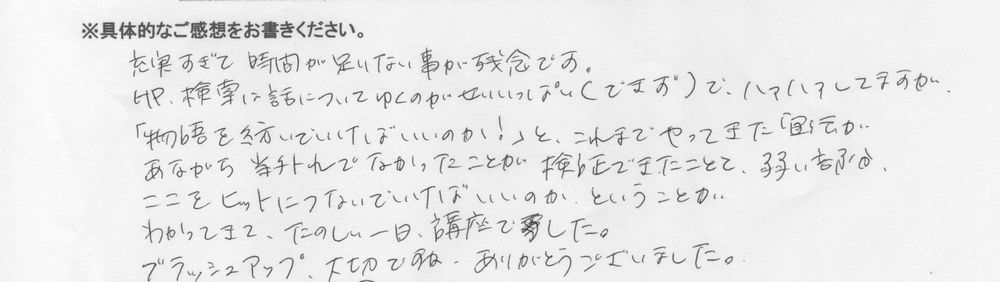 ※具体的なご感想をお書きください。
充実すぎて時間が足りない事が残念です。
HP、検索は話についてゆくのがせいいっぱい(できず)で、ハァハァしてますが、
「物語を紡いでいけばいいのか!」と、これまでやってきた
あながち当チれでなかったことが検証できたことと、弱い部分、
ここをヒットにつないでいけばいいのか、ということが
わかってきて、たのしい一日、講座でした。
ブラッシュアップ、大切ですね。ありがとうございました。